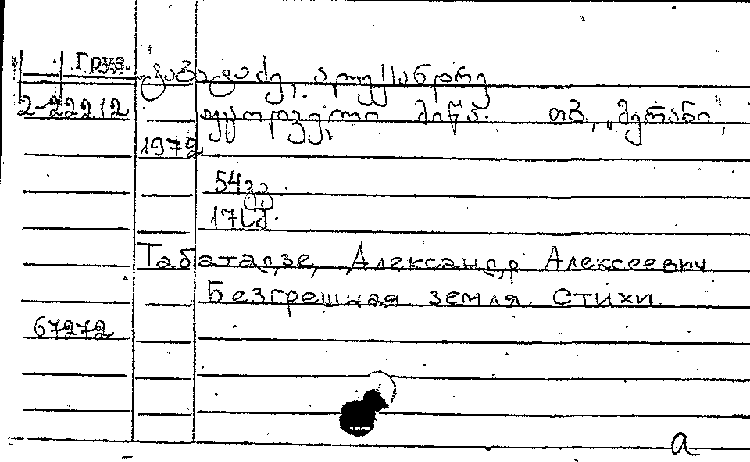 Груз. ტაბატაძე, ალექსანდრე
2-22212 უცოდველი მიწა. თბ, „მერანი“,
1972
54გვ.
17სმ.
Табатадзе, Александр Алексеевич
Безгрешная земля. Стихи.
67272
а